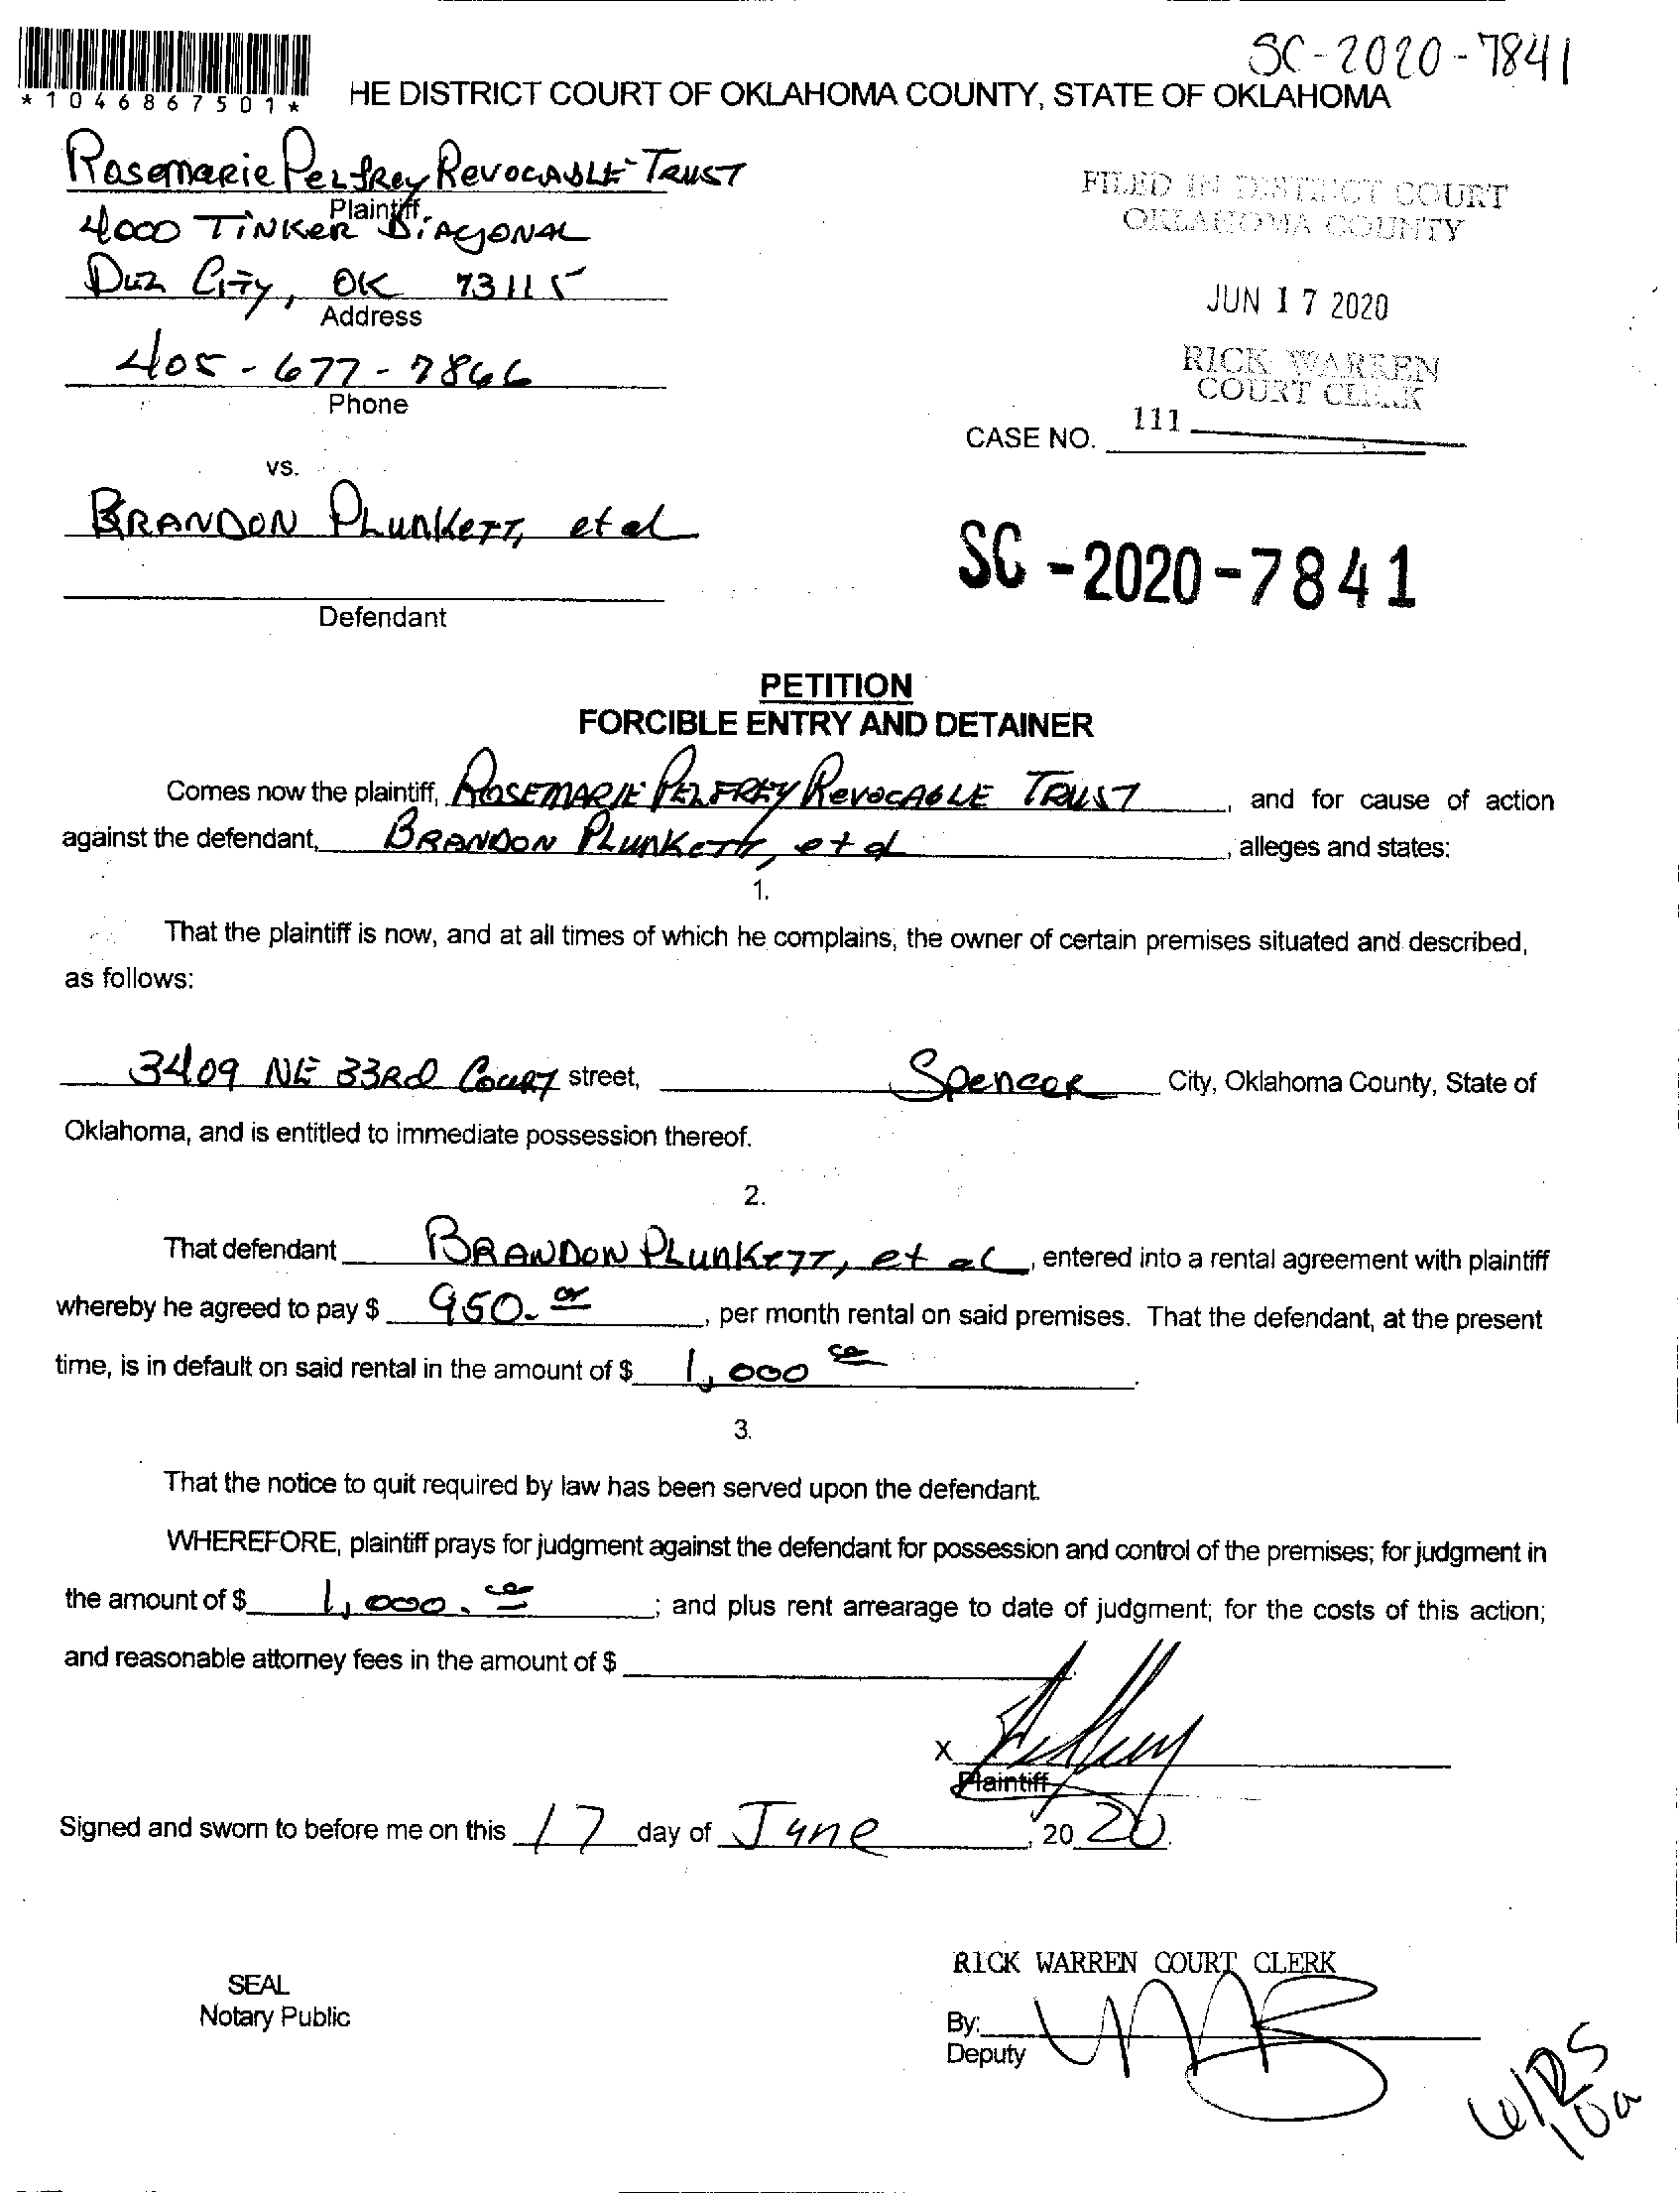 SC-2020-7841
*1046867501*
HE DISTRICT COURT OF OKLAHOMA COUNTY, STATE OF OKLAHOMA
Rosemarie Pelfrey Revocable Trust
Plaintiff
4000 Tinker Diagonal
Del City, OK 73115
Address
405-677-7866
Phone
FILED IN DISTRICT COURT
OKLAHOMA COUNTY
JUN 17 2020
RICK WARREN
COURT CLERK
111
CASE NO.
vs.
Brandon Plunkett, et al
Defendant
SC-2020-7841
PETITION
FORCIBLE ENTRY AND DETAINER
Comes now the plaintiff, Rosemarie Pelfrey Revocable Trust, and for cause of action
against the defendant, Brandon Plunkett, et al, alleges and states:
1.
That the plaintiff is now, and at all times of which he complains, the owner of certain premises situated and described,
as follows:
3409 NE 33rd Court street, Spencer City, Oklahoma County, State of
Oklahoma, and is entitled to immediate possession thereof.
2.
That defendant Brandon Plunkett, et al, entered into a rental agreement with plaintiff
whereby he agreed to pay $ 950.00, per month rental on said premises. That the defendant, at the present
time, is in default on said rental in the amount of $ 1,000 00.
3.
That the notice to quit required by law has been served upon the defendant.
WHEREFORE, plaintiff prays for judgment against the defendant for possession and control of the premises; for judgment in
the amount of $ 1,000.00; and plus rent arrearage to date of judgment; for the costs of this action;
and reasonable attorney fees in the amount of $
X
Plaintiff
Signed and sworn to before me on this 17 day of June, 2020.
SEAL
Notary Public
RICK WARREN COURT CLERK
By:
Deputy